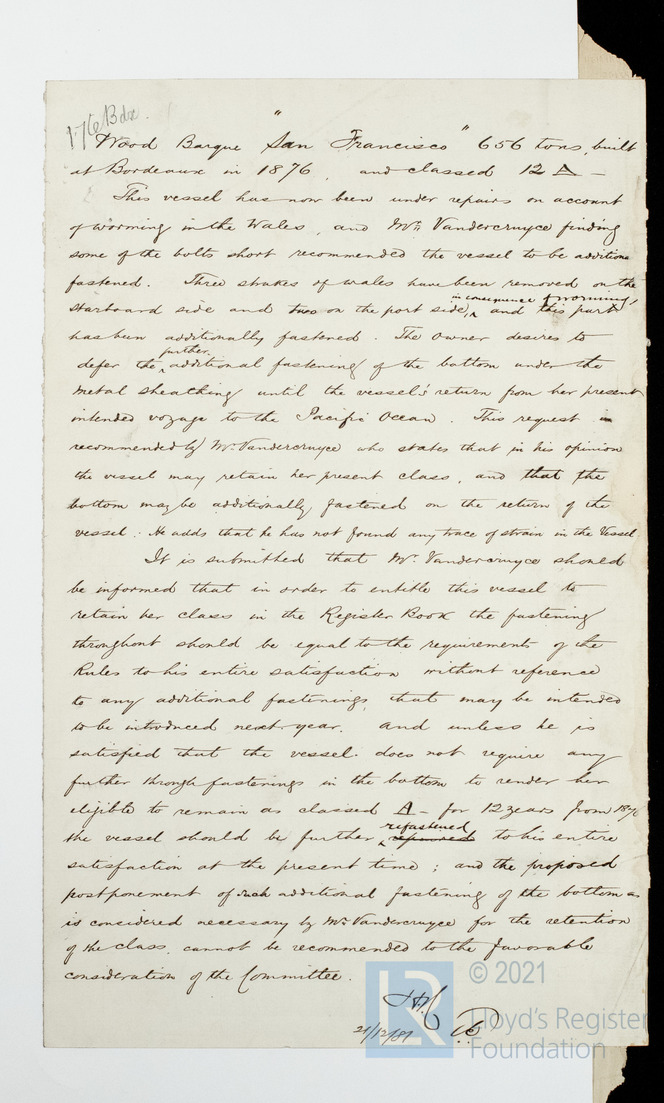 176 Bdx.
Wood Barque "San Francisco" 656 tons, built
at Bordeaux in 1876, and classed 12 A —
This vessel has now been under repairs on account
of worming in the Wales, and Mr. Vandercruyce finding
some of the bolts short recommended the vessel to be additional
fastened. Three strakes of wales have been removed on the
in consequence of worming,
starboard side and two on the port side, and this part
has been additionally fastened. The Owner desires to
further
defer the additional fastening of the bottom under the
metal sheathing until the vessel's return from her present
intended voyage to the Pacific Ocean. This request is
recommended by Mr. Vandercruyce who states that in his opinion
the vessel may retain her present class, and that the
bottom may be additionally fastened on the return of the
vessel: He adds that he has not found any trace of strain in the Vessel
It is submitted that Mr. Vandercruyce should
be informed that in order to entitle this vessel to
retain her class in the Register Book the fastening
throughout should be equal to the requirements of the
Rules to his entire satisfaction without reference
to any additional fastenings, that may be intended
to be introduced next year, and unless he is
satisfied that the vessel does not require any
further through fastenings in the bottom to render her
eligible to remain as classed A — for 12 years from 1876
refastened
the vessel should be further repaired to his entire
satisfaction at the present time; and the proposed
postponement of such additional fastening of the bottom as
is considered necessary by Mr. Vandercruyce for the retention
of the class, cannot be recommended to the favorable
consideration of the Committee.
21/12/81
LR
© 2021
Lloyd's Register
Foundation